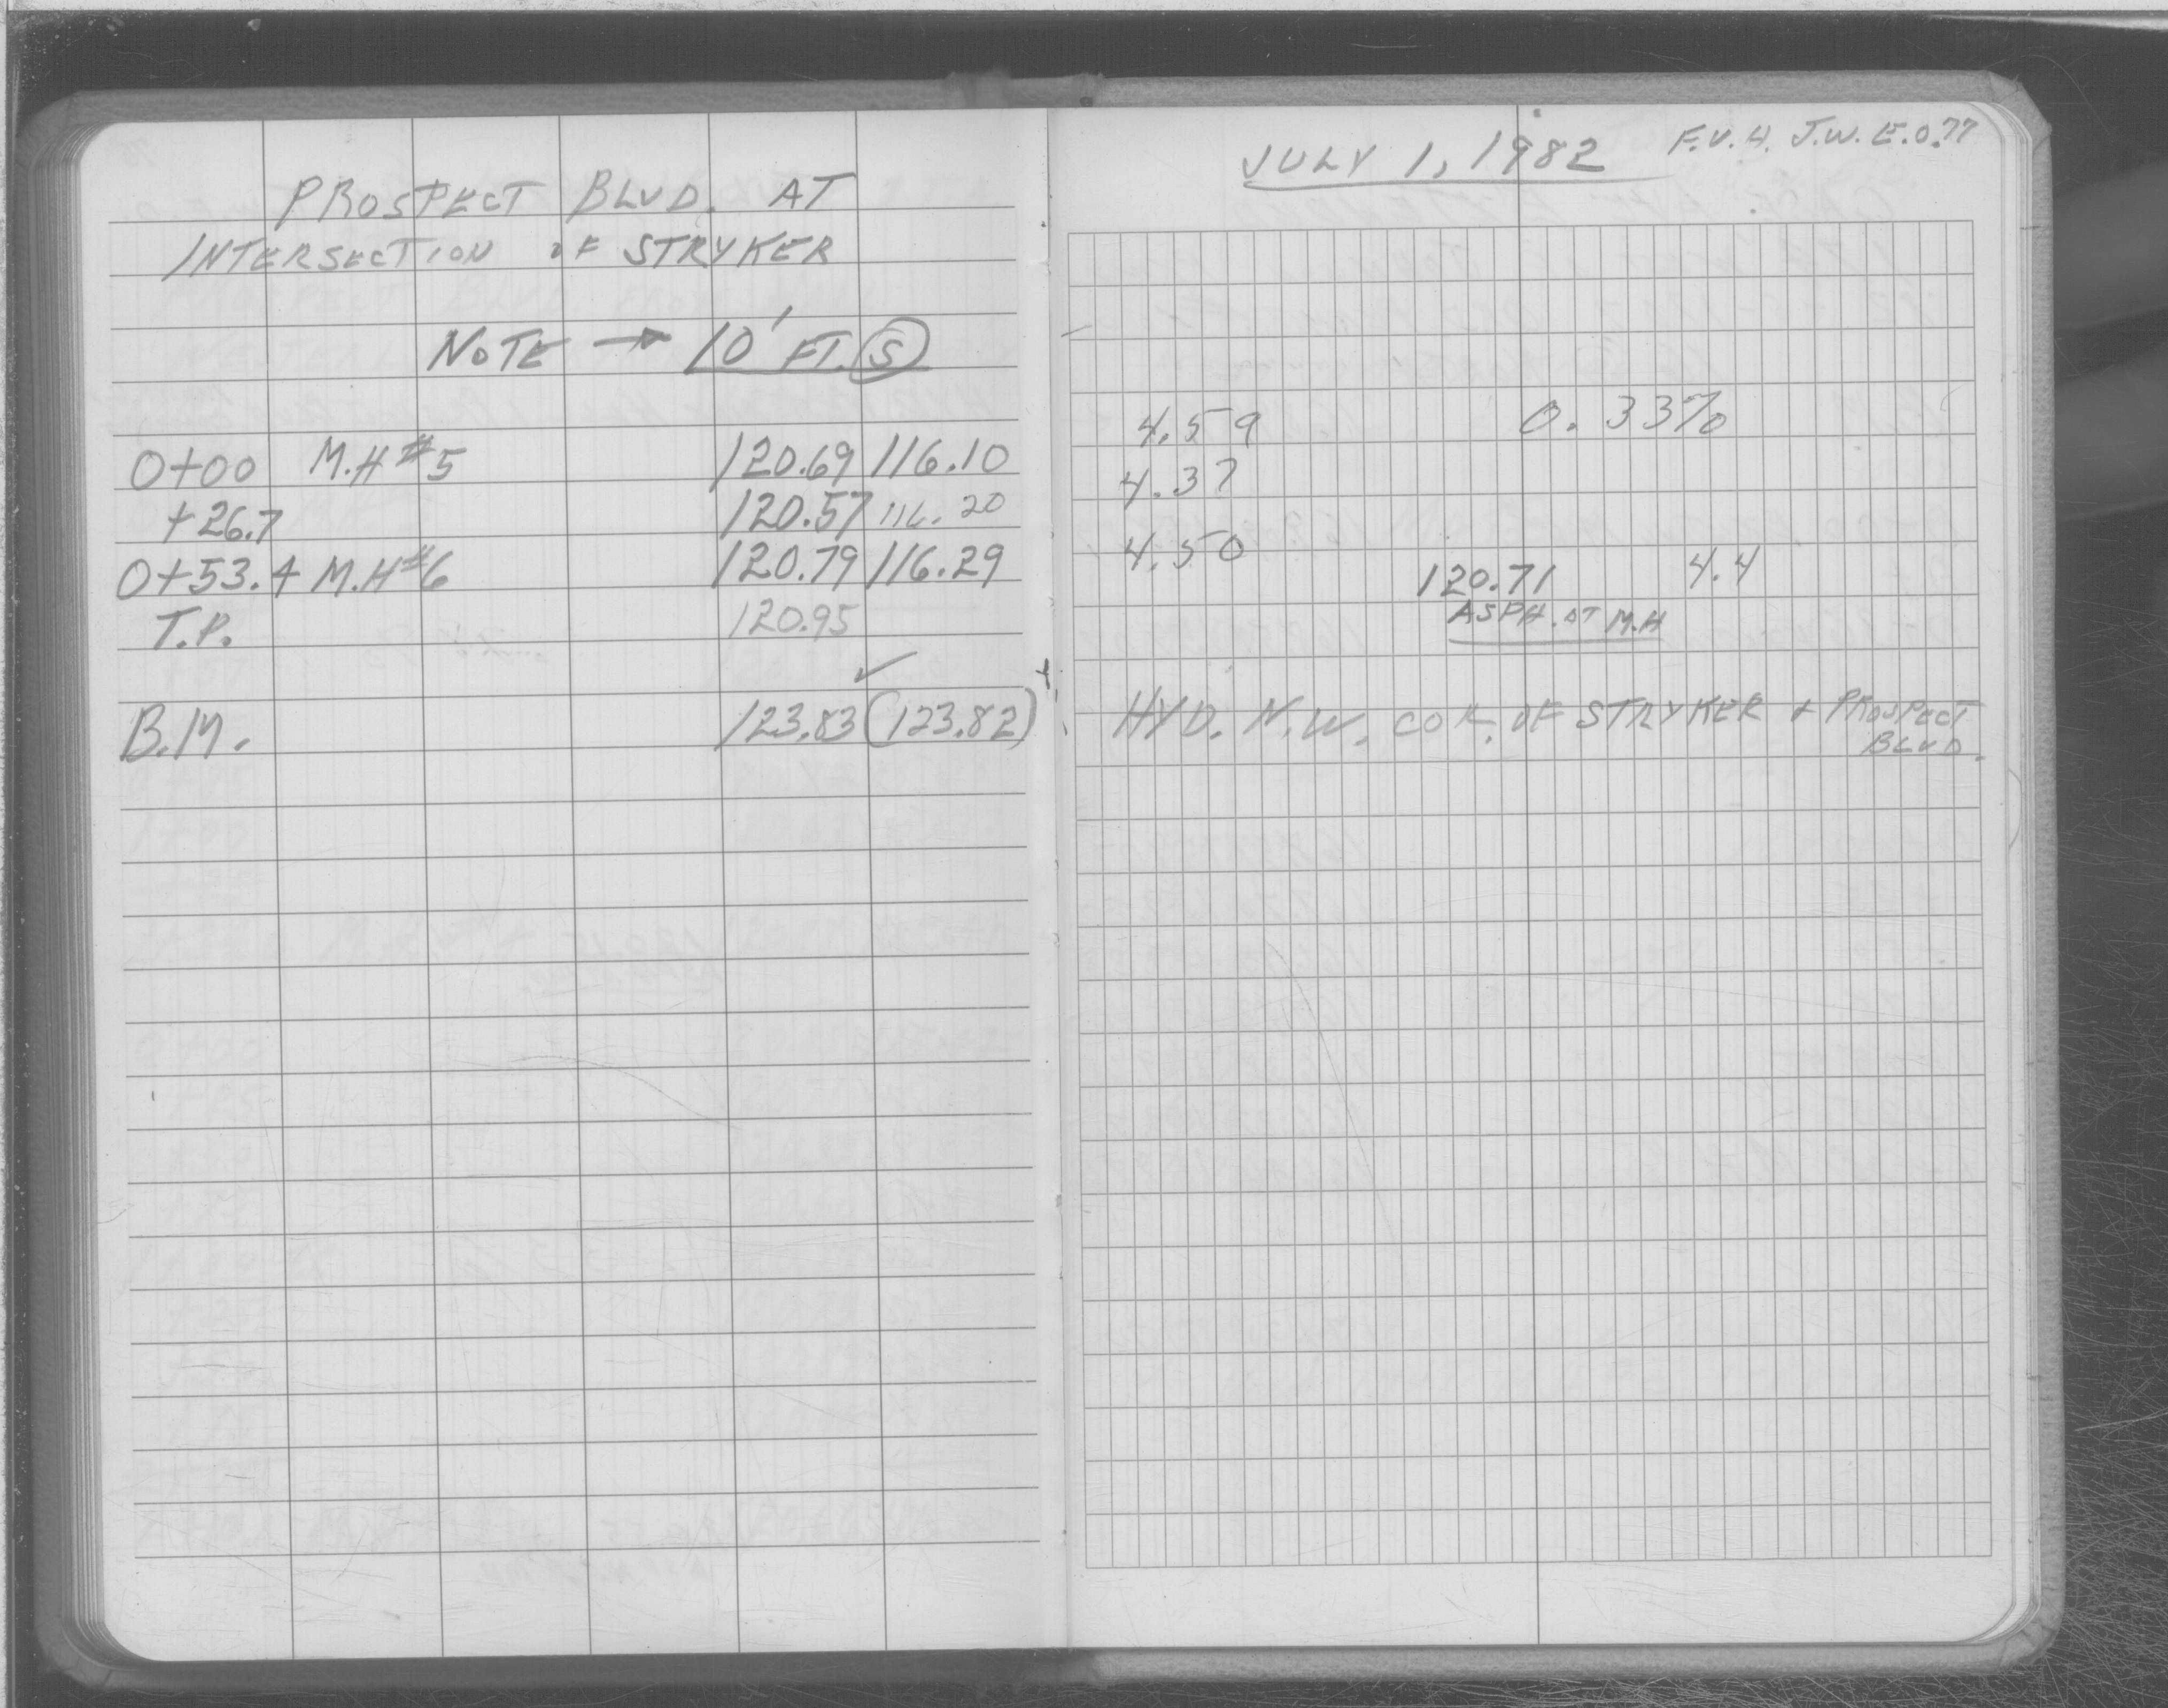 PROSPECT BLVD. AT
INTERSECTION OF STRYKER
NOTE → 10' FT. (S)
0+00 M.H #5 120.69 116.10
+26.7 120.57 116.20
0+53.4 M.H #6 120.79 116.29
T.P. 120.95
✓
B.M. 123.83 (123.82)
JULY 1, 1982 F.V.H. J.W. E.O. 77
4.59 0.33%
4.37
4.50
120.71 4.4
ASPH. AT M.H
HYD. N.W. COR. OF STRYKER + PROSPECT
BLVD.